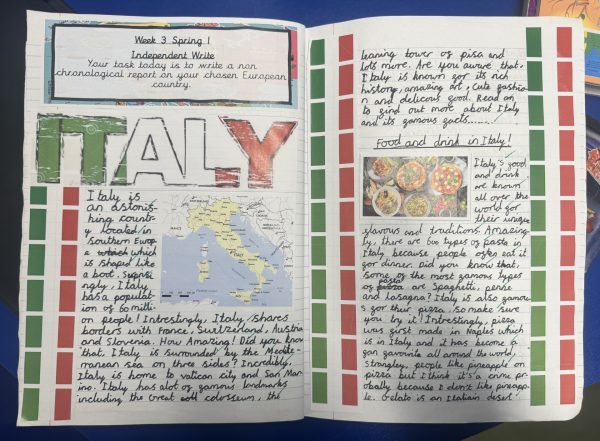 Week 3 Spring 1
Independent Write
Your task today is to write a non
chronological report on your chosen European
country.
ITALY
Italy is
an astonis-
hing countr-
y located in
southern Europ
e which
is shaped like
a boot. Suprisi
ngly, Italy
has a populat-
ion of 60 milli-
on people! Intrestingly, Italy shares
borders with France, Switzerland, Austria
and Slovenia. How Amazing! Did you know
that, Italy is surrounded by the Medite-
rranean sea on three sides? Incredibly,
Italy is home to vatican city and San Mar-
ino. Italy has alot of famous landmarks
including the Great colosseum, the
leaning tower of pisa and
lots more. Are you aware that,
Italy is known for its rich
history, amazing art, cute fashio-
n and delicous food. Read on
to find out more about Italy
and its famous facts......
Food and drink in Italy!
Italy's food
and drink
are known
all over the
world for
their unique
flavours and traditions. Amazing-
ly, there are 600 types of pasta in
Italy because people often eat it
for dinner. Did you know that,
some of the most famous types
of pasta are Spaghetti, penne
and lasagna? Italy is also famou
s for their pizza, so make sure
you try it! Intrestingly, pizza
was first made in Naples which
is in Italy and it has become a
fan favourite all around the world,
strangley, people like pineapple on
pizza but I think it's a crime pr-
obally because I don't like pineapp-
le. Gelato is an Italian desert